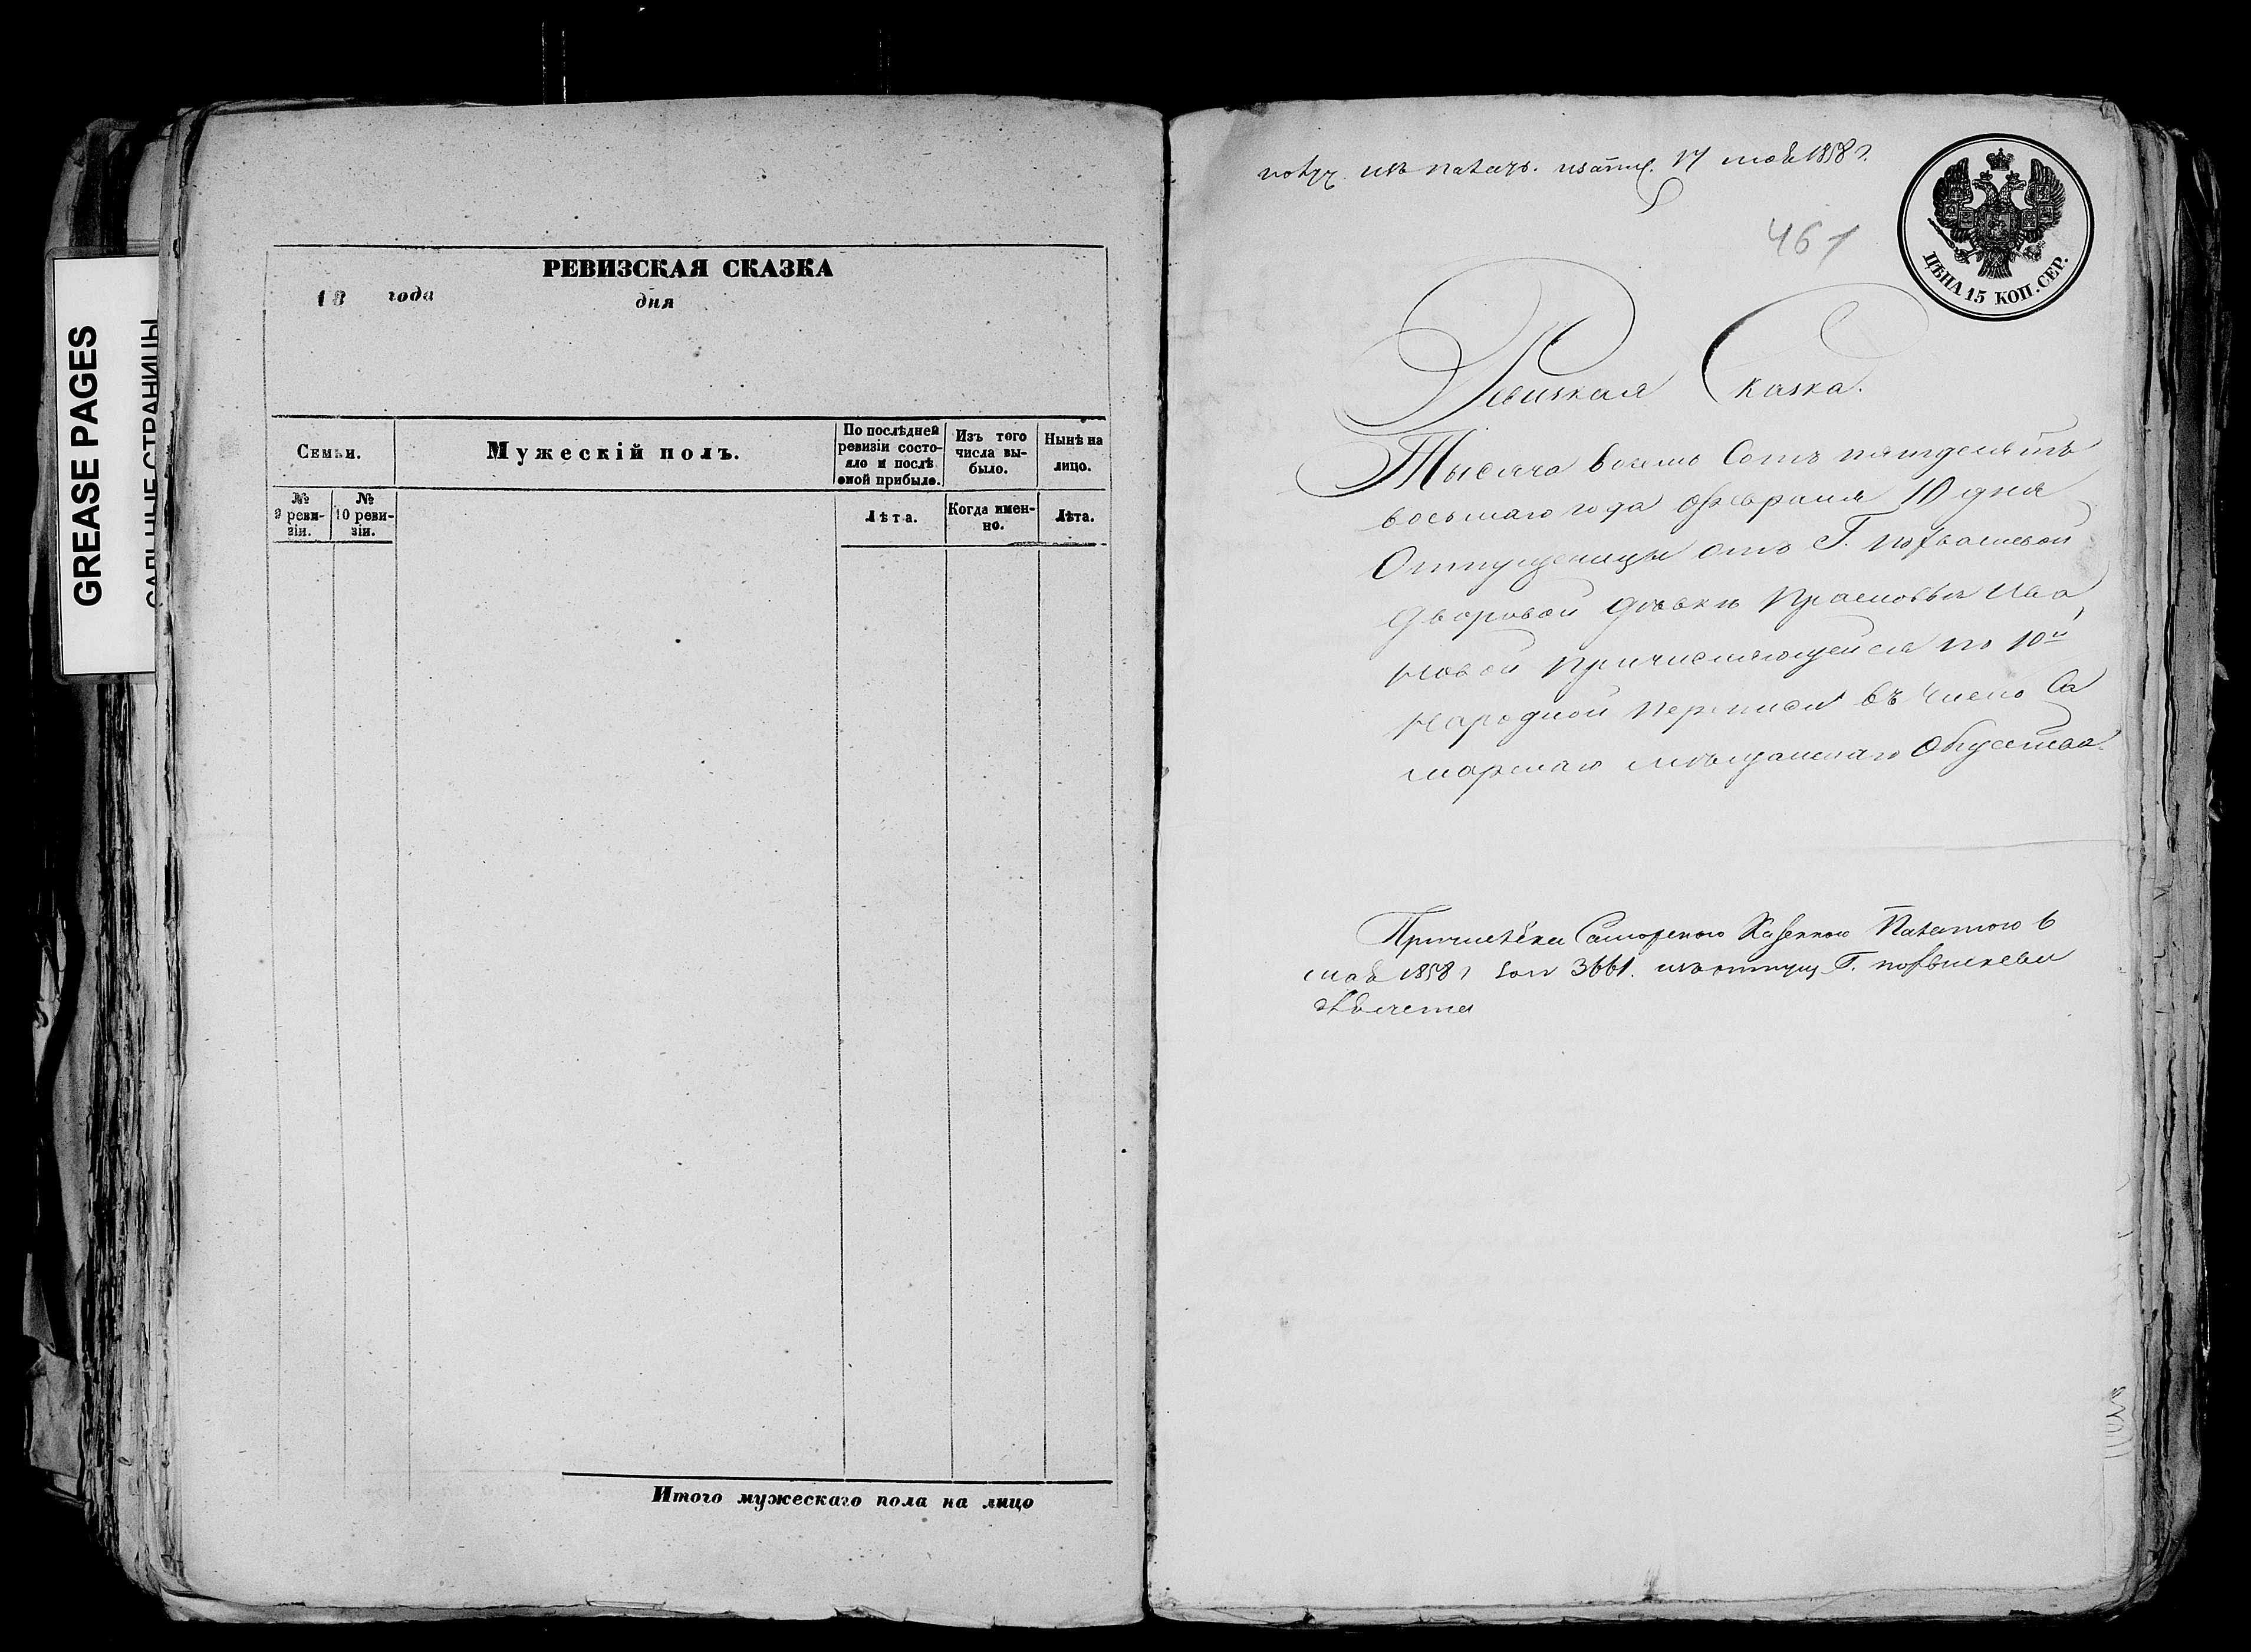 GREASE PAGES
САЛЬНЫЕ СТРАНИЦЫ
РЕВИЗСКАЯ СКАЗКА
18 года дня
Семьи.
Мужескій полъ.
По послѣдней
ревизіи состо-
яло и послѣ
оной прибыло.
Изъ того
числа вы-
было.
Нынѣ на
лицо.
№
9 реви-
зіи.
№
10 реви-
зіи.
Лѣта.
Когда имен-
но.
Лѣта.
Итого мужескаго пола на лицо
17 мая 1858 г.
461
ЦѢНА 15 КОП. СЕР.
Ревизкая Сказка.
Тысяча восемь Сотъ пятдесятъ
восьмаго года февраля 10 дня
Отпущеницы отъ Г.
дворовой дѣвки Прасковьи Ива
новой причисляющейся по 10й
народной переписи въ число Са
марскаго мѣщанскаго Общества.
Причислена Самарскою Казенною Палатою 6
мая 1858 г 3661. Г.